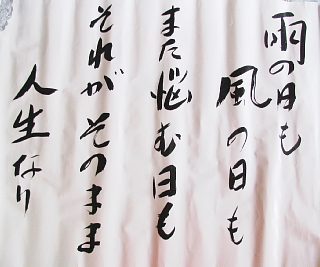 雨の日も
風の日も
また悩む日も
それがそのまま
人生なり